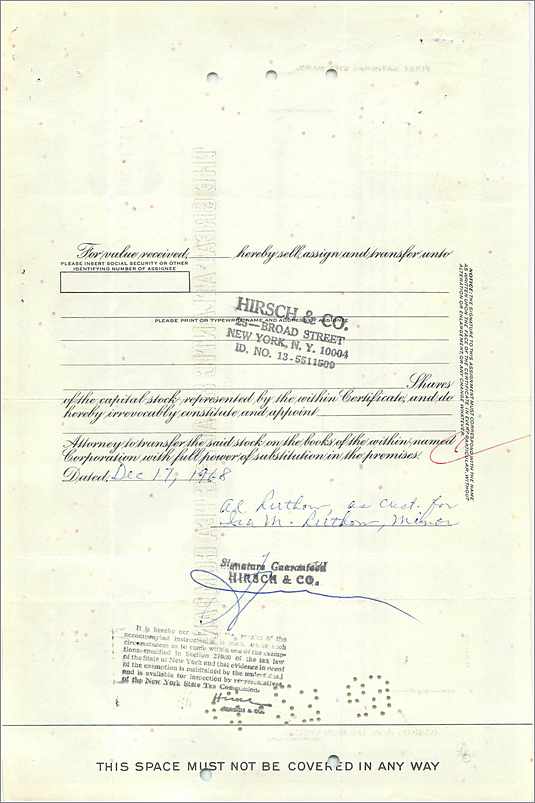 For value received, hereby sell, assign and transfer unto
PLEASE INSERT SOCIAL SECURITY OR OTHER
IDENTIFYING NUMBER OF ASSIGNEE
HIRSCH & CO.
PLEASE PRINT OR TYPEWRITE NAME AND ADDRESS OF ASSIGNEE
25—BROAD STREET
NEW YORK, N. Y. 10004
ID. NO. 13-5511509
Shares
of the capital stock represented by the within Certificate, and do
hereby irrevocably constitute and appoint
Attorney to transfer the said stock on the books of the within named
Corporation with full power of substitution in the premises.
Dated, Dec 17, 1968
as cust. for
M. Minor
Signature Guaranteed
HIRSCH & CO.
It is hereby
accompanying
circumstances as to come within one of the
tions specified in Section 270 of the tax law
of the State of New York and that evidence in
of the exemption is maintained by the
and is available for inspection by
of the New York State Tax Commission.
HIRSCH & CO.
NOTICE: THE SIGNATURE TO THIS ASSIGNMENT MUST CORRESPOND WITH THE NAME
AS WRITTEN UPON THE FACE OF THE CERTIFICATE IN EVERY PARTICULAR, WITHOUT
ALTERATION OR ENLARGEMENT, OR ANY CHANGE WHATEVER.
THIS SPACE MUST NOT BE COVERED IN ANY WAY